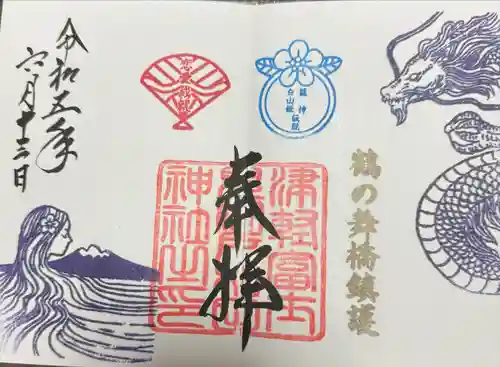 令和五年
六月十三日
龍神
白山姫
伝説
奉拝
津軽富士
神社之印
鶴の舞橋鎮護